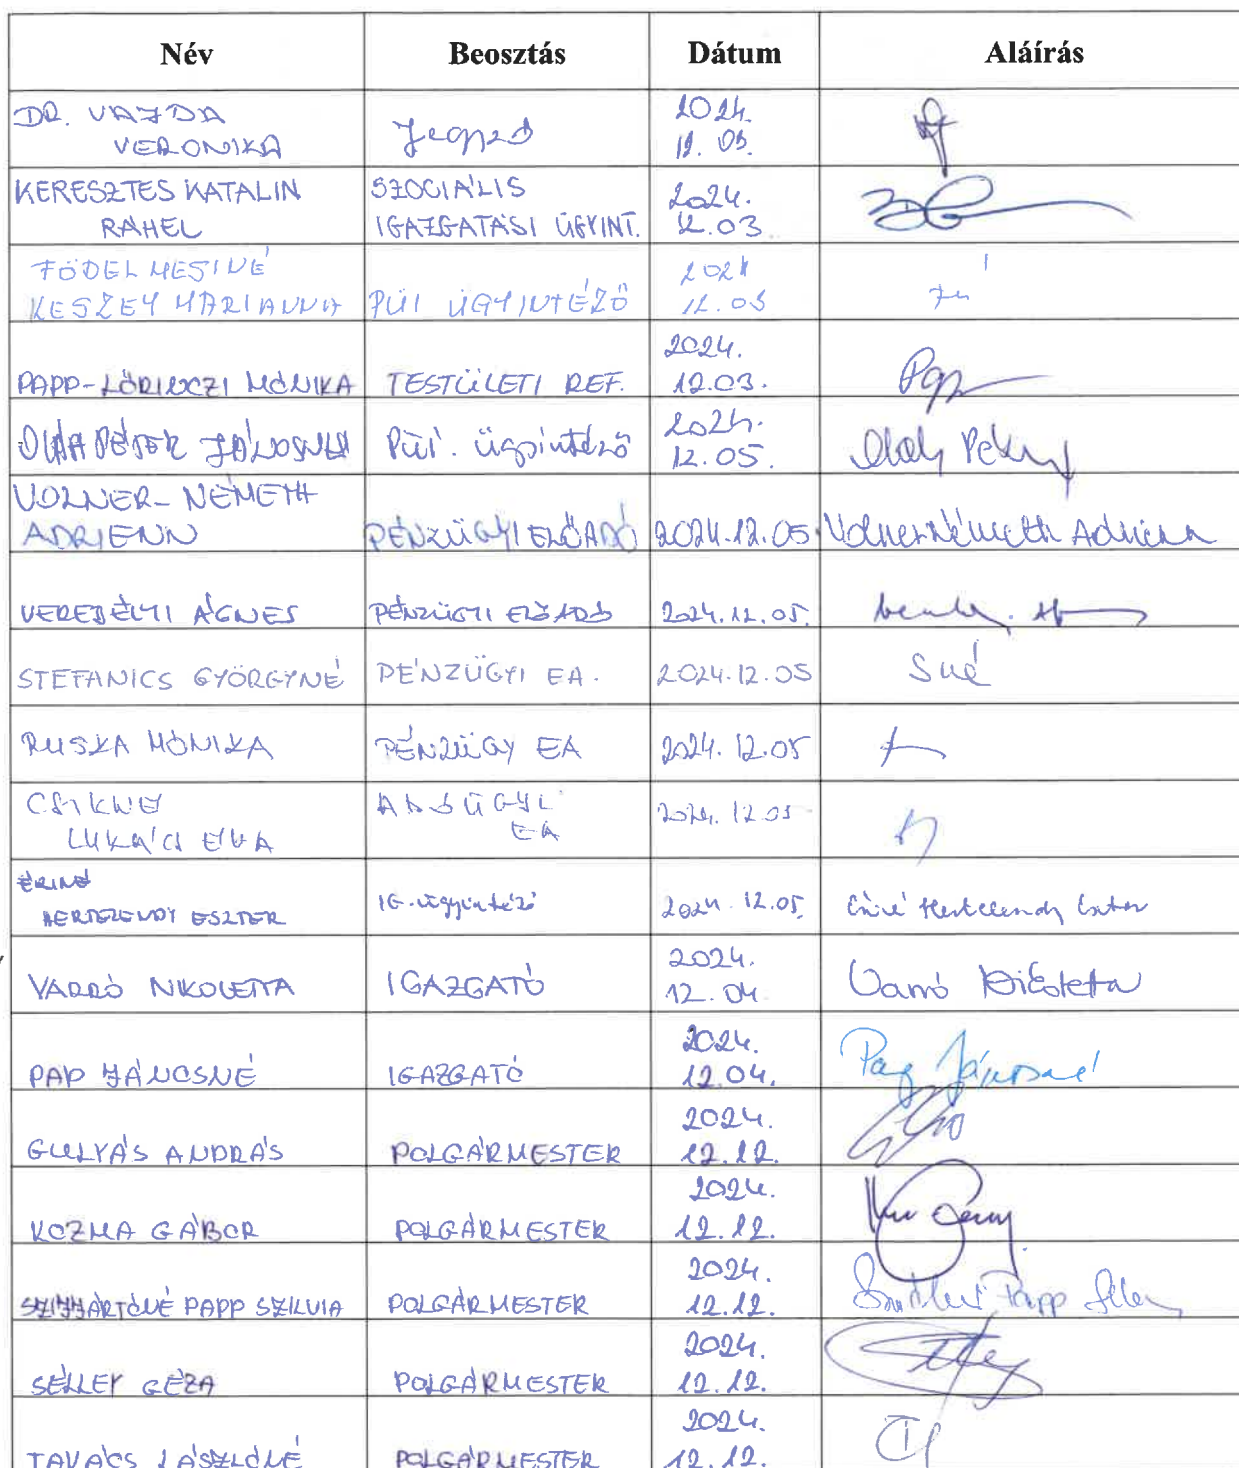 Név Beosztás Dátum Aláírás
DR. VAJDA 2024.
VERONIKA Jegyző 12. 03.
KERESZTES KATALIN SZOCIÁLIS 2024.
RÁHEL IGAZGATÁSI ÜGYINT. 12.03.
FÖDELMESINÉ 2024
KESZEY MARIANNA PÜI ÜGYINTÉZŐ 12.03
2024.
PAPP-LŐRINCZI MÓNIKA TESTÜLETI REF. 12.03. Papp
OLÁH PÉTER JÁNOSNÉ Püi. ügyintéző 2024.
12.05.
VOLNER-NÉMETH
ADRIENN PÉNZÜGYI ELŐADÓ 2024.12.05. Volner-Németh Adrienn
VEREBÉLYI ÁGNES PÉNZÜGYI ELŐADÓ 2024.12.05.
STEFANICS GYÖRGYNÉ PÉNZÜGYI EA. 2024.12.05 Sné
RUSKA MÓNIKA PÉNZÜGY EA 2024.12.05
CSIKNÉ ADÓÜGYI 2024.12.05
LUKÁCS ÉVA EA
ÉRINÉ
HERTELENDY ESZTER IG. ügyintéző 2024.12.05. Ériné Hertelendy Eszter
2024.
VARRÓ NIKOLETTA IGAZGATÓ 12.04 Varró Nikoletta
2024.
PAP JÁNOSNÉ IGAZGATÓ 12.04. Pap Jánosné
2024.
GULYÁS ANDRÁS POLGÁRMESTER 12.12.
2024.
KOZMA GÁBOR POLGÁRMESTER 12.12.
2024.
SZIJJÁRTÓNÉ PAPP SZILVIA POLGÁRMESTER 12.12.
2024.
SÉLLEY GÉZA POLGÁRMESTER 12.12.
2024.
TAVACS LÁSZLÓNÉ POLGÁRMESTER 12.12.